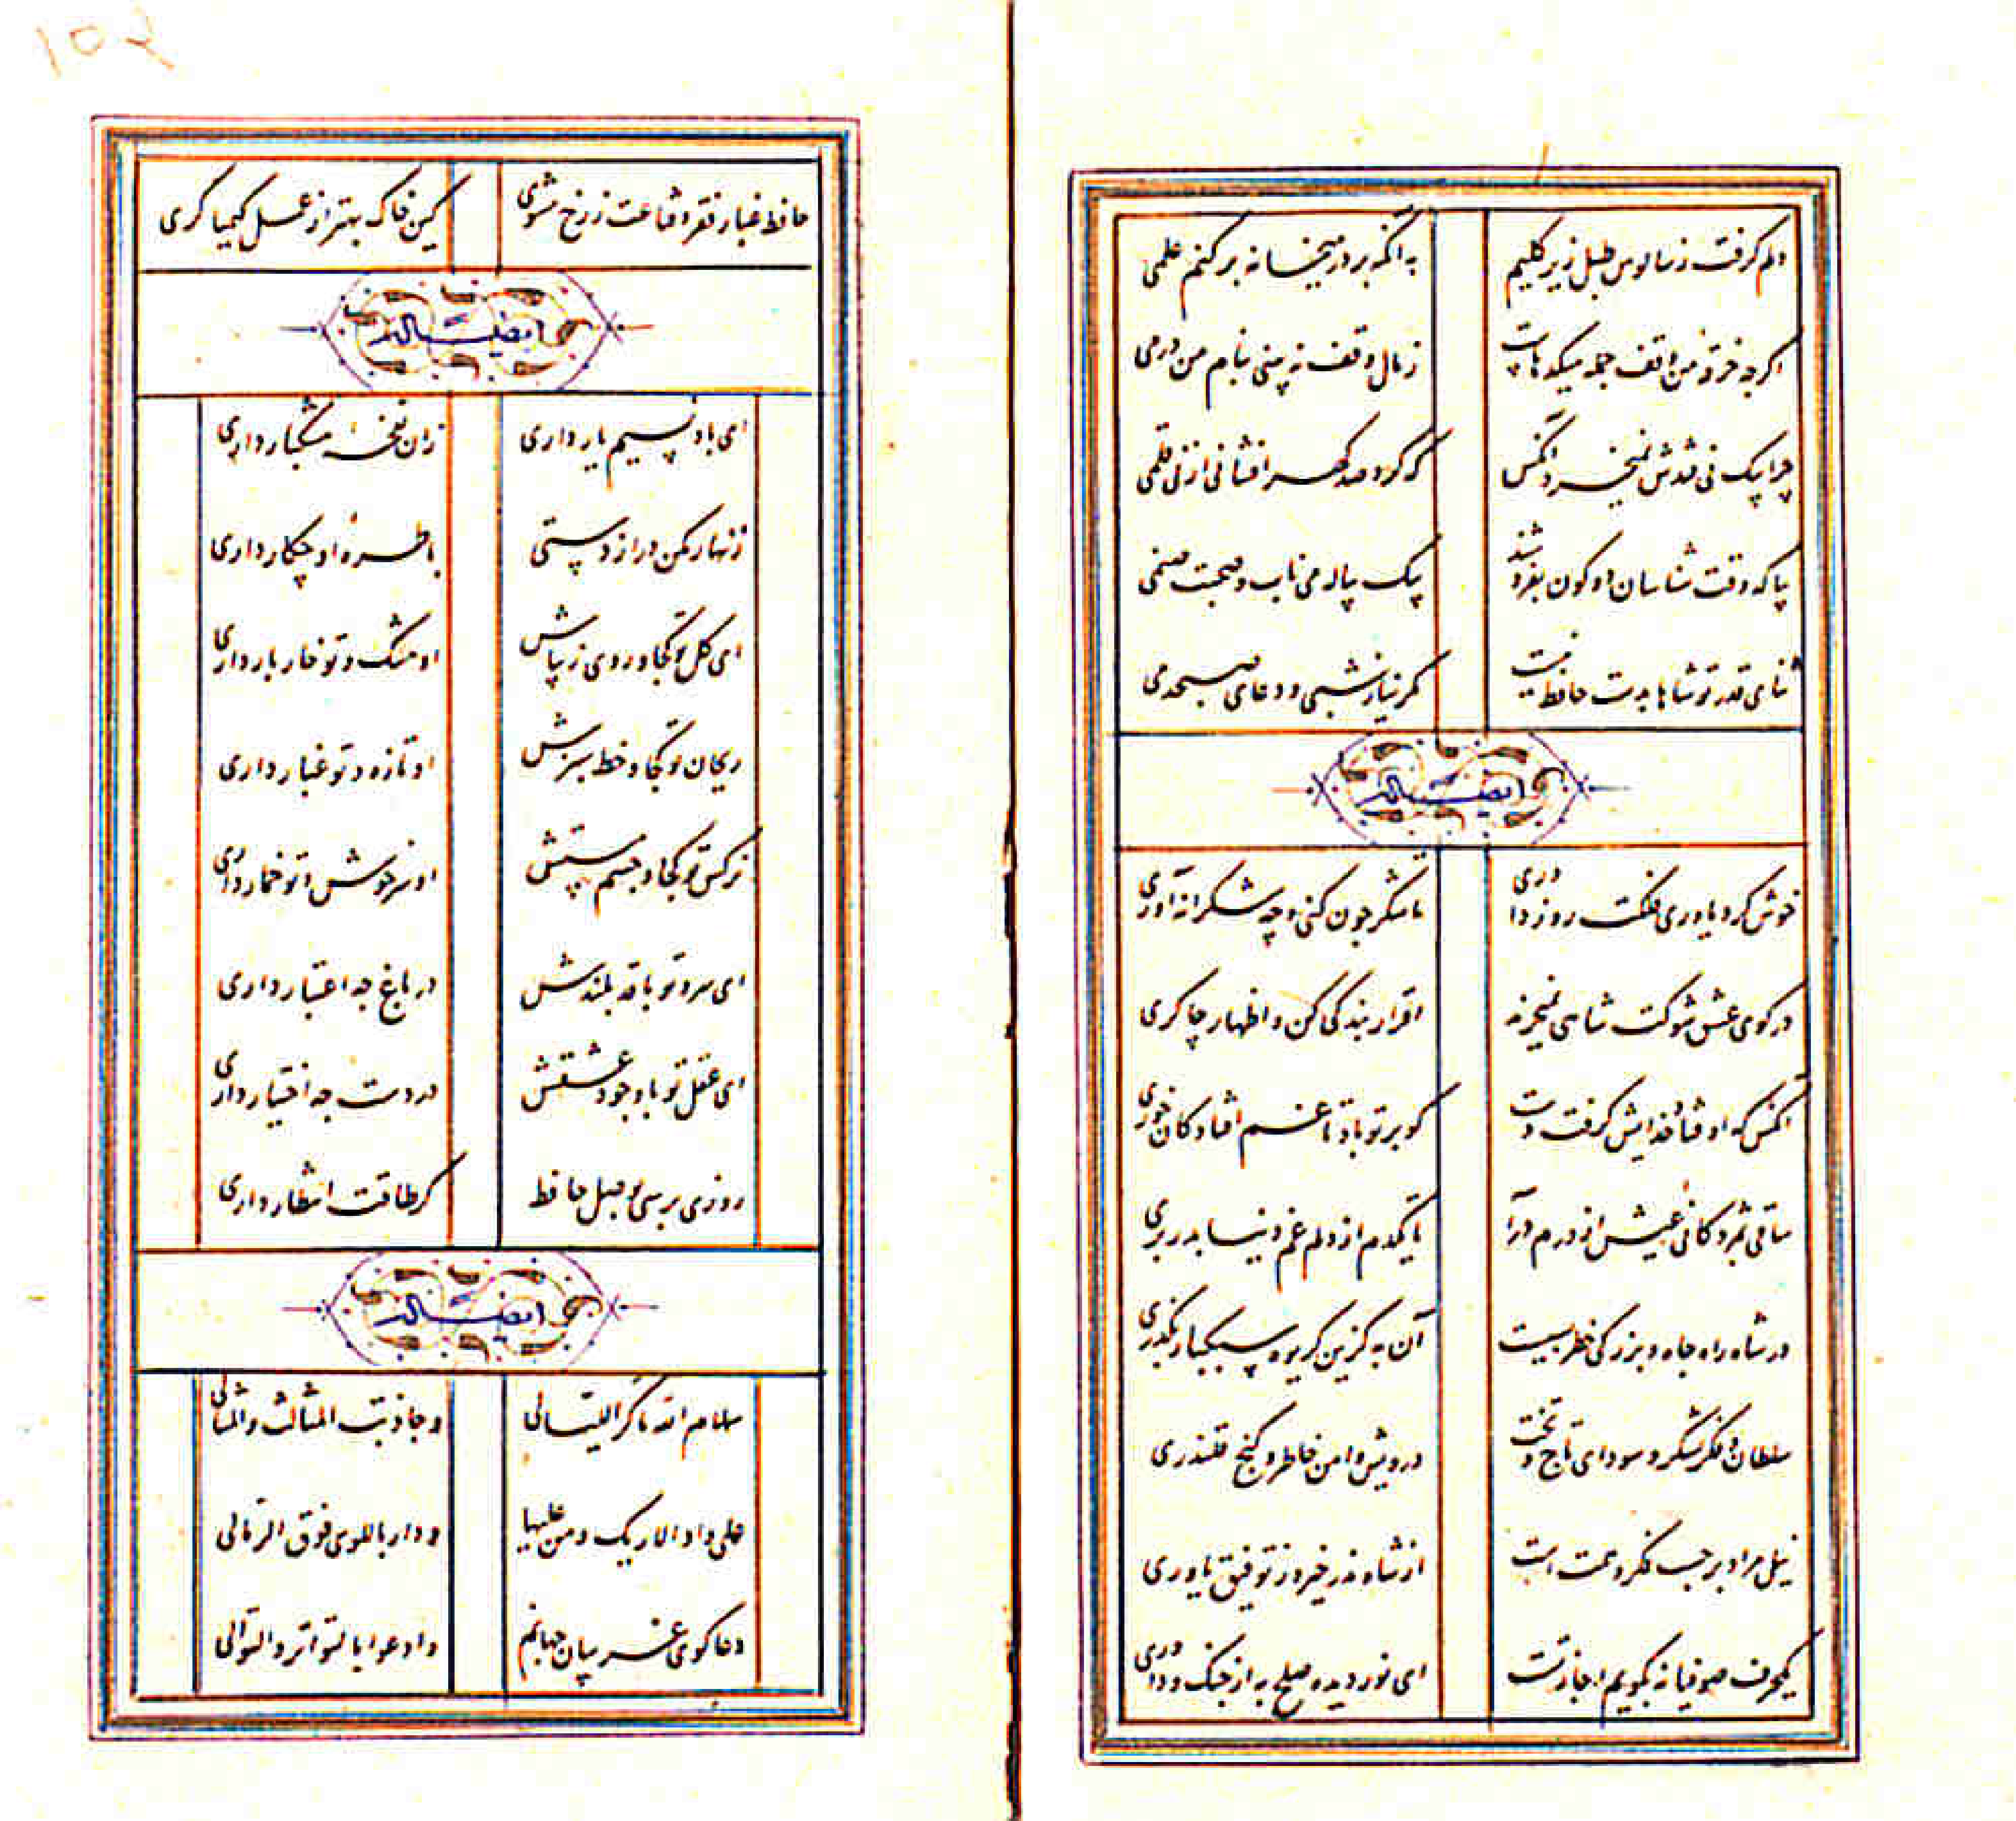 دلم گرفت ز سالوس طبل زیر گلیم
به آنکه بر در میخانه برکنم علمی
اگر چه خرقهٔ من وقف جمله میکدهاست
ز مال وقف نه بینی بنام من درمی
چرا بیک نی قندش نمیخرد آنکس
که کرد صد گهر افشانی از نی قلمی
بیا که وقت شناسان دو کون بفروشند
بیک پیاله می ناب و صحبت صنمی
ثنای قدر تو شاها بدست حافظ نیست
مگر نیاز شبی و دعای صبحدمی
ایضاً له
خوش کرد یاوری فلکت روز داوری
تا شکر چون کنی و چه شکرانه آوری
در کوی عشق شوکت شاهی نمیخرند
اقرار بندگی کن و اظهار چاکری
آنکس که اوفتاد خدایش گرفت دست
کو بر تو باد تا غم افتادگان خوری
ساقی بمژدگانی عیش از درم درآ
تا یکدم از دلم غم دنیا بدر بری
در شاه راه جاه و بزرگی خطر بسیست
آن به کزین کریوه سبکبار بگذری
سلطان و فکر لشکر و سودای تاج و تخت
درویش و امن خاطر و کنج قلندری
نیل مراد بر حسب فکر و همت است
از شاه نذر خیر و ز توفیق یاوری
یکحرف صوفیانه بگویم اجازتست
ای نور دیده صلح به از جنک و داوری
۱۵۲
حافظ غبار فقر و قناعت ز رخ مشوی
کین خاک بهتر از عمل کیمیا گری
ایضاً له
ای باد نسیم یار داری
زان نفحهٔ مشکبار داری
زنهار مکن دراز دستی
با طرهٔ او چکار داری
ای گل تو کجا و روی زیباش
او مشک و تو خار بار داری
ریحان تو کجا و خط سبزش
او تازه و تو غبار داری
نرگس تو کجا و چشم مستش
او سرخوش و تو خمار داری
ای سرو تو با قد بلندش
در باغ چه اعتبار داری
ای عقل تو با وجود عشقش
در دست چه اختیار داری
روزی برسی بوصل حافظ
گر طاقت انتظار داری
ایضاً له
سلام الله ماکر اللیالی
و جاذبت المثالث والمثالی
علی واد الاریک و من علیها
و دار باللوی فوق الرمالی
دعاگوی غریبان جهانم
و ادعوا بالتواتر والتوالی